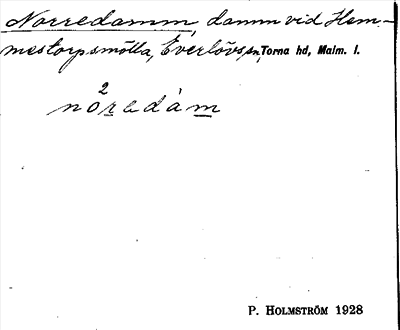 Norredamm, damm vid Hem-
mestorpsmölla, Everlövs sn, Torna hd, Malm. l.
2
noredàm
P. HOLMSTRÖM 1928